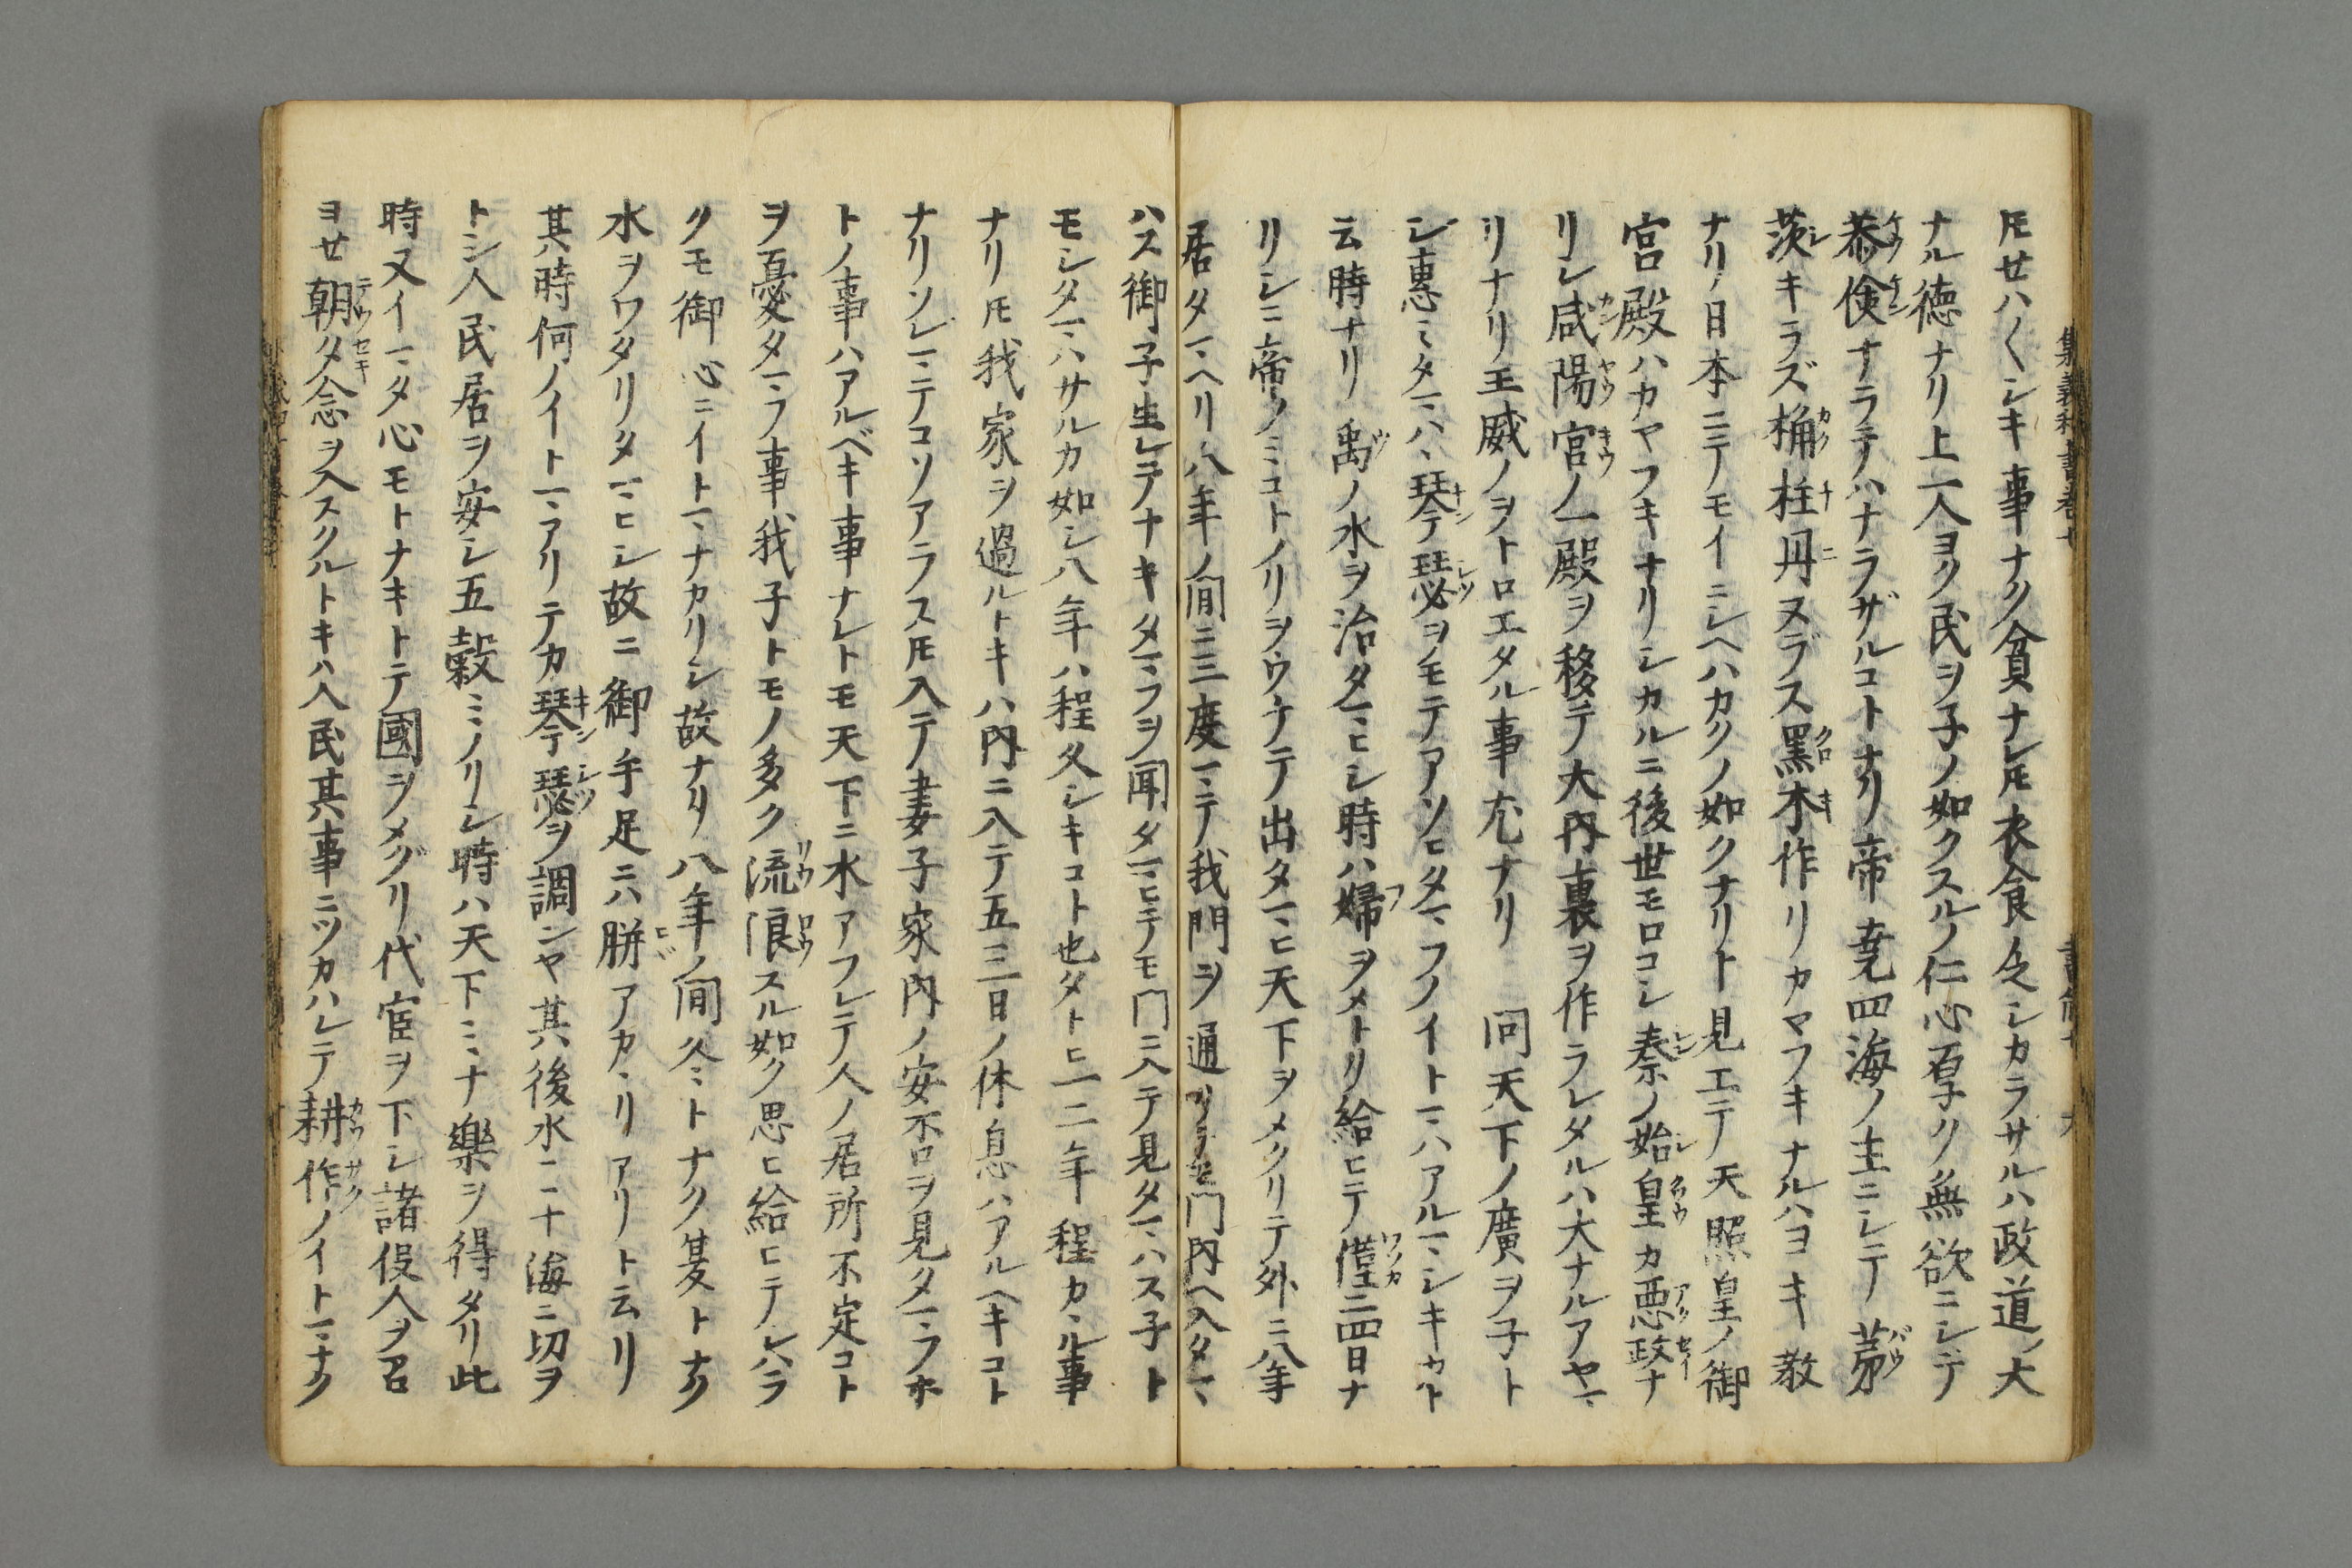 集義和書巻七
𪜈せハ〱シキ事ナク貧ナレ𪜈衣食乏シカラサルハ政道ノ大
ナル徳ナリ上一人ヨク民ヲ子ノ如クスルノ仁心厚ク無欲ニシテ
恭倹ナラテハナラザルコトナリ帝堯四海ノ主ニシテ茅
茨キラズ桷柱丹ヌラス黒木作リカヤフキナルハヨキ教
ナリ日本ニテモイニシヘハカクノ如クナリト見エテ天照皇ノ御
宮殿ハカヤフキナリシカルニ後世モロコシ秦ノ始皇カ悪政ナ
リシ咸陽宮ノ一殿ヲ移テ大内裏ヲ作ラレタルハ大ナルアヤマ
リナリ王威ノヲトロエタル事尤ナリ　問天下ノ廣ヲ子ト
シ惠ミタマハヽ琴瑟ヲモテアソヒタマフノイトマハアルマシキカト
云時ナリ禹ノ水ヲ治タマヒシ時ハ婦ヲメトリ給ヒテ僅ニ四日ナ
リシニ帝ノミコトノリヲウケテ出タマヒ天下ヲメクリテ外ニ八年
居タマヘリ八年ノ間ニ三度マテ我門ヲ通リ門内ヘ入タマ
ハス御子生レテナキタマフヲ聞タマヒテモ門ニ入テ見タマハス子ト
モシタマハサルカ如シ八年ハ程久シキコト也タトヒ一二年程カヽル事
ナリ𪜈我家ヲ過ルトキハ内ニ入テ五三日ノ休息ハアルヘキコト
ナリソレマテコソアラス𪜈入テ妻子家内ノ安否ヲ見タマフホ
トノ事ハアルベキ事ナレトモ天下ニ水アフレテ人ノ居所不定コト
ヲ憂タマフ事我子トモノ多ク流浪スル如ク思ヒ給ヒテシハラ
クモ御心ニイトマナカリシ故ナリ八年ノ間冬トナク夏トナク
水ヲワタリタマヒシ故ニ御手足ニハ胼アカヽリアリト云リ
其時何ノイトマアリテカ琴瑟ヲ調ンヤ其後水ニ十海ニ切ヲ
トシ人民居ヲ安シ五穀ミノリシ時ハ天下ミナ樂ヲ得タリ此
時又イマタ心モトナキトテ國ヲメグリ代官ヲ下シ諸役人ヲ召
ヨせ朝夕念ヲ入スクルトキハ人民其事ニツカハレテ耕作ノイトマナク